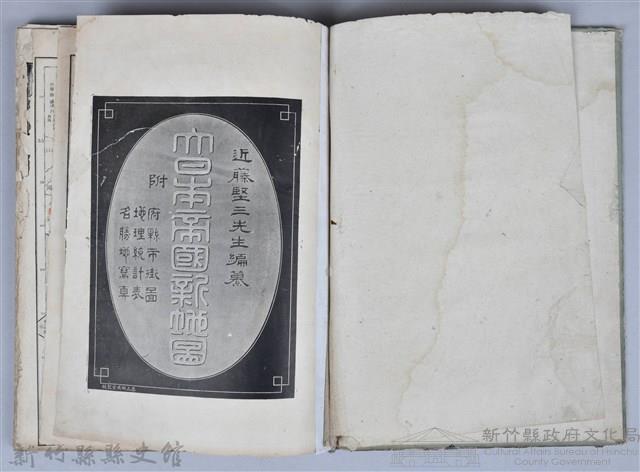 近藤堅三先生編纂
大日本帝國新地圖
附
府縣市街圖
地理統計表
名勝鄉寫真
新竹縣縣史館
新竹縣政府文化局
Cultural Affairs Bureau of Hsinchu
County Government